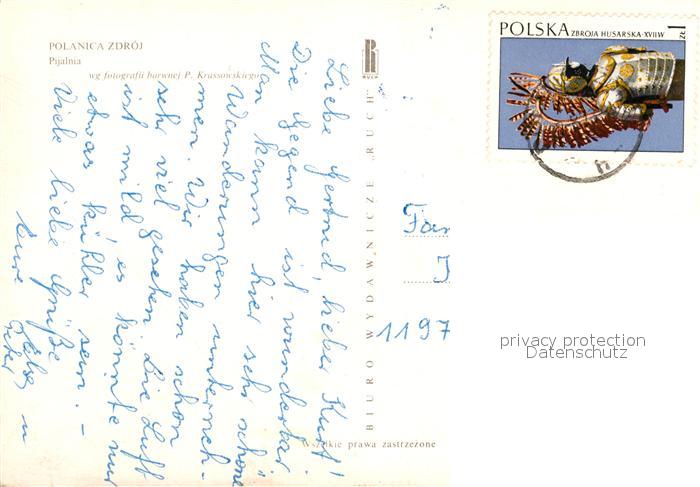 POLANICA ZDRÓJ
Pijalnia
wg fotografii barwnej P. Krassowskiego
Liebe Gertrud, lieber Kurt!
Die Gegend ist wunderbar.
Man kann hier sehr schöne
Wanderungen unterneh-
men. Wir haben schon
sehr viel gesehen. Die Luft
ist mild, es könnte nur
etwas kühler sein. -
Viele liebe Grüße
Eure
u
Peter
RUCH
BIURO WYDAWNICZE „RUCH”
Wszelkie prawa zastrzeżone
POLSKA ZBROJA HUSARSKA-XVII W
1 ZŁ
Fam
J
1197
privacy protection
Datenschutz